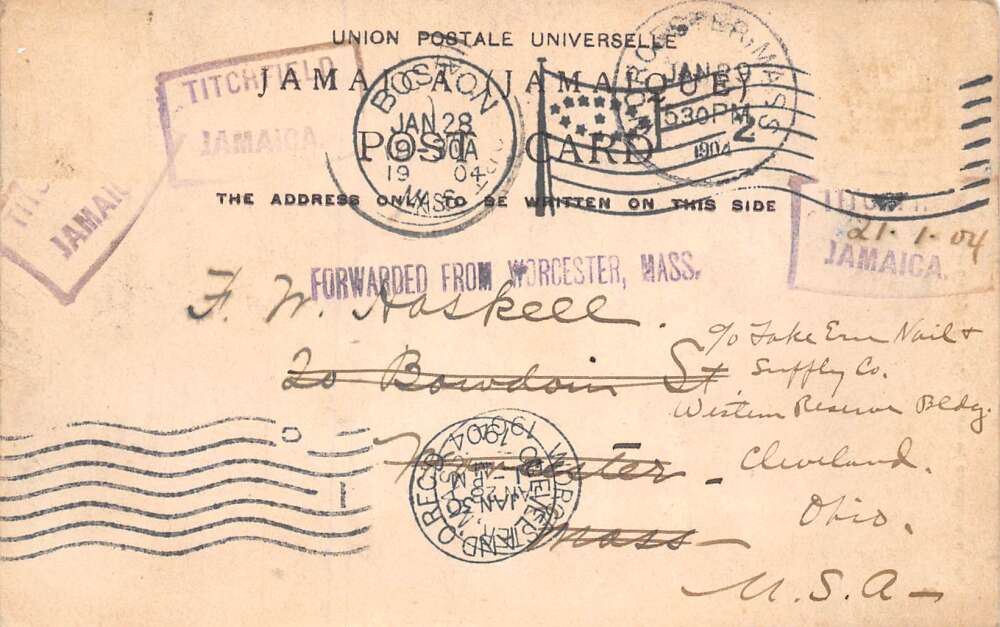 UNION POSTALE UNIVERSELLE
JAMAICA (JAMAIQUE)
POST CARD
THE ADDRESS ONLY TO BE WRITTEN ON THIS SIDE
TITCHFIELD
JAMAICA.
JAMAIC
BOSTON
JAN 28
9-30A
19 04
MASS.
WORCESTER, MASS
JAN 29
530PM
1904
2
TITCH
21.1.04
JAMAICA.
FORWARDED FROM WORCESTER, MASS.
F. W. Haskell.
20 Bowdoin St
Worcester.
Mass
U.S.A
c/o Lake Erie Nail &
Supply Co.
Western Reserve Bldg.
Cleveland.
Ohio.
CLEVELAND, O. REC'D
JAN 30
1904